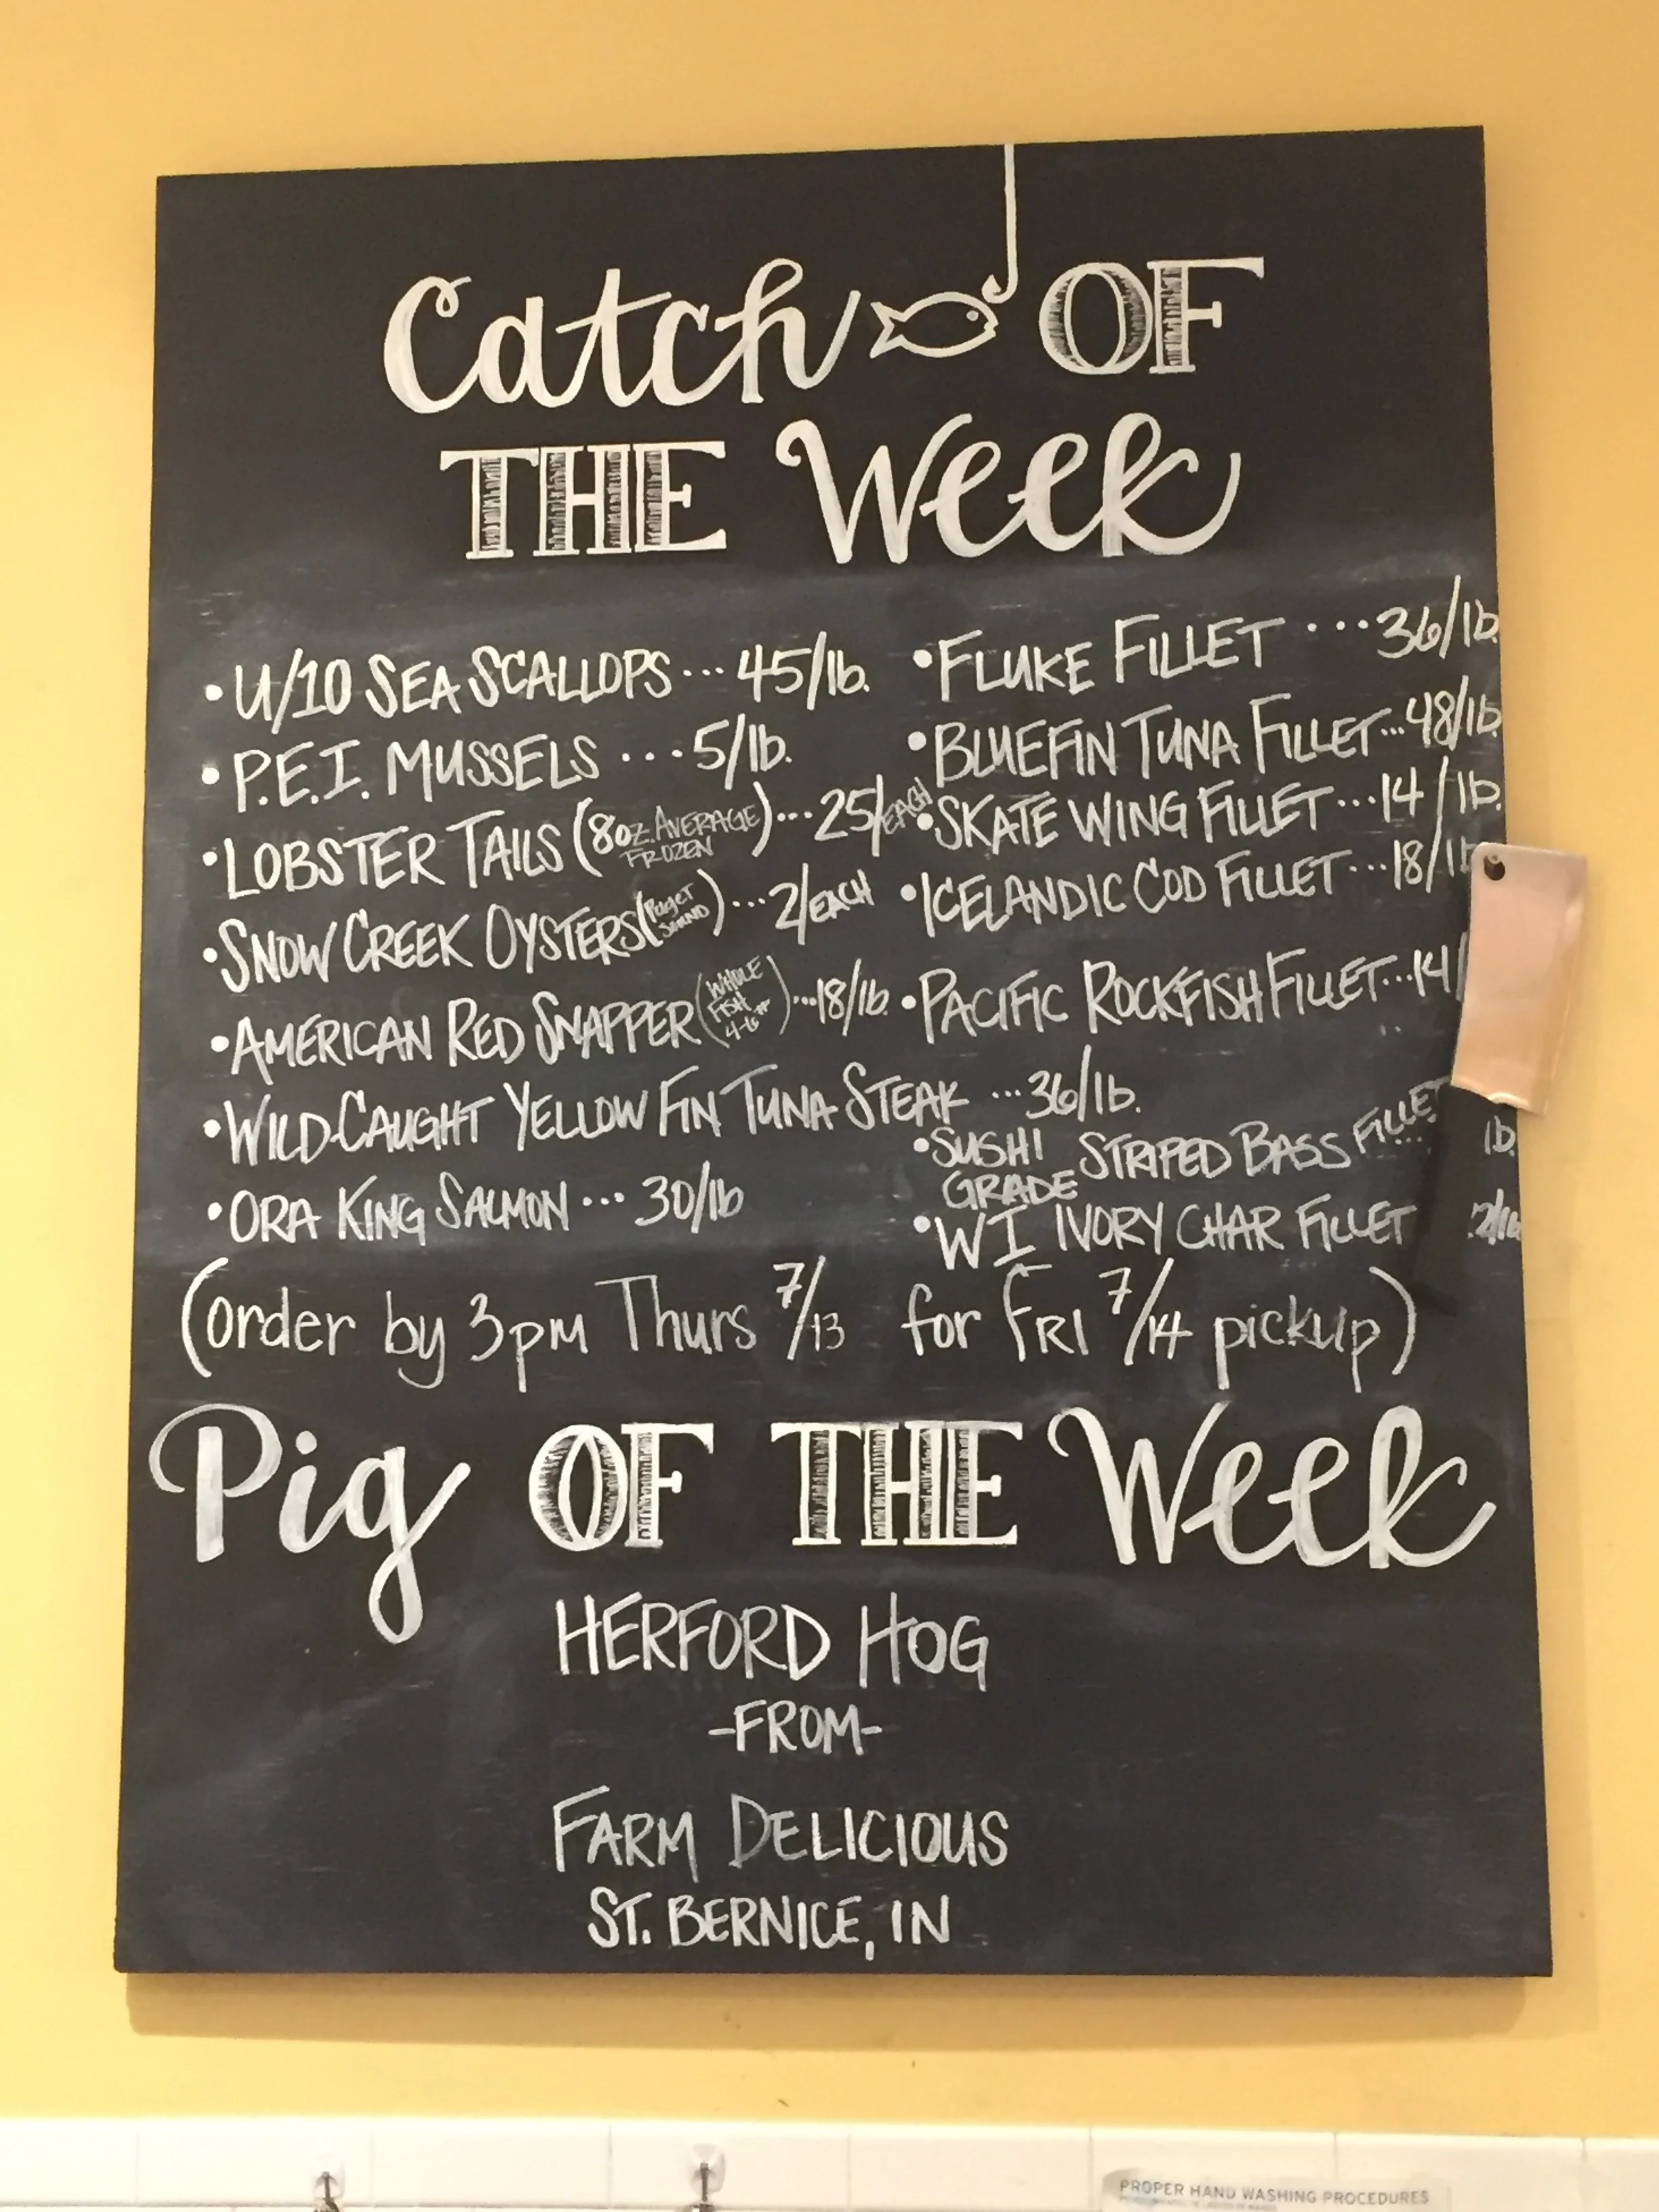 Catch OF
THE Week
• U/10 SEA SCALLOPS ... 45/lb.
• P.E.I. MUSSELS .... 5/lb.
• LOBSTER TAILS (8oz. AVERAGE FROZEN) ... 25/EACH
• SNOW CREEK OYSTERS (Puget Sound) ... 2/EACH
• AMERICAN RED SNAPPER (WHOLE FISH 4-6#) ... 18/lb.
• WILD-CAUGHT YELLOW FIN TUNA STEAK ... 36/lb.
• ORA KING SALMON ... 30/lb
• FLUKE FILLET .... 36/lb.
• BLUEFIN TUNA FILLET ... 48/lb.
• SKATE WING FILLET ... 14/lb.
• ICELANDIC COD FILLET ... 18/lb
• PACIFIC ROCKFISH FILLET ... 14/
• SUSHI GRADE STRIPED BASS FILLET ... lb.
• WI IVORY CHAR FILLET
(order by 3pm Thurs 7/13 for FRI 7/14 pickup)
Pig OF THE Week
HERFORD HOG
-FROM-
FARM DELICIOUS
ST. BERNICE, IN
PROPER HAND WASHING PROCEDURES